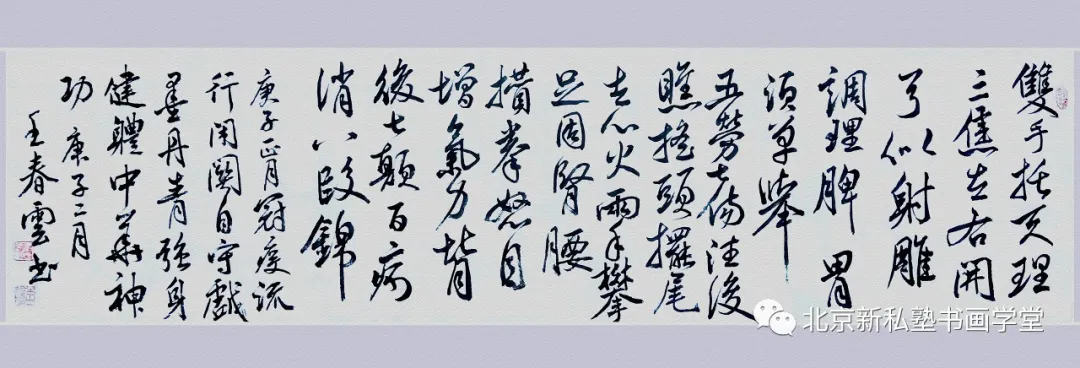 雙手托天理
三焦左右開
弓似射雕
調理脾胃
須单舉
五勞七傷往後
瞧搖頭擺尾
去心火兩手攀
足固腎腰
攢拳怒目
增氣力背
後七顛百病
消八段錦
庚子正月冠疫流
行閉關自守戲
墨丹青強身
健體中華神
功 庚子二月
王春雲书
北京新私塾书画学堂